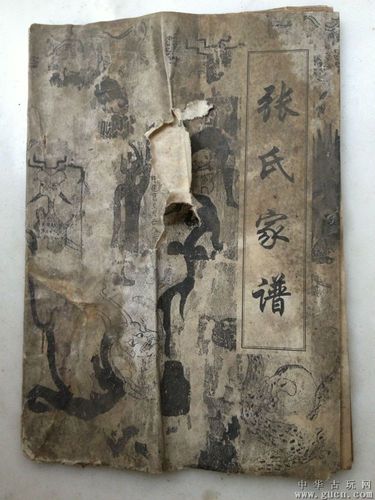 张氏家谱
中华古玩网
www.gucn.com